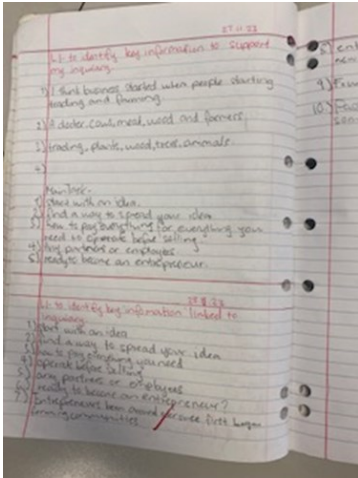 27.11.23
L.I- to identify key information to support
my inquiry.
1) I think business started when people starting
trading and farming.
2) A doctor, cows, mead, wood and farmers
3) trading, plants, wood, trees, animals.
4)
Main Task-
1) start with an idea.
2) find a way to spread your idea
3) how to pay everything for, everything you
need to operate before selling.
4) partners or employees
5) ready to become an entrepreneur.
23
L.I- to identify key information linked to
inquiry
1) start with an idea
2) find a way to spread your idea
3) how to pay everything you need
4) operate before selling
5) any partners or employees
6) ready to become an entrepreneur?
7) Entrepreneurs been around since first
farming communities
8)
9)
10)